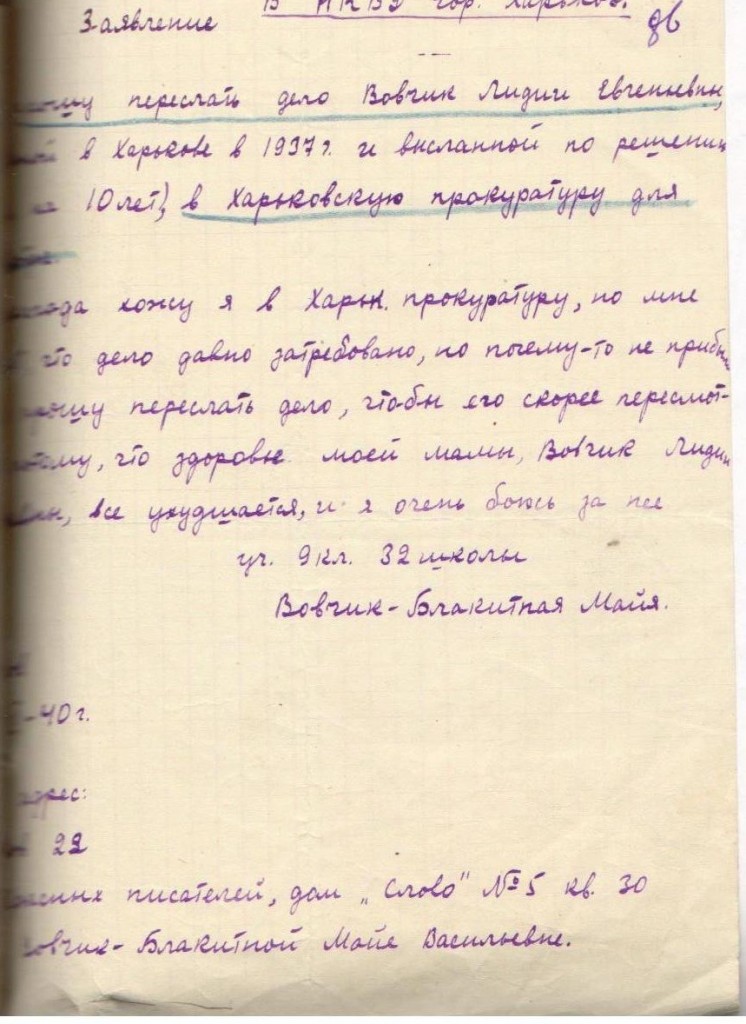 В НКВД гор. Харьков.
Заявление
переслать дело Вовчик Лидии Евгеньевны,
в Харькове в 1937 г. и высланной по решени
10 лет), в Харьковскую прокуратуру для
хожу я в Харьк. прокуратуру, но мне
что дело давно затребовано, но почему-то не прибы
переслать дело, чтобы его скорее пересмот-
что здоровье моей мамы, Вовчик Лидии
все ухудшается, и я очень боюсь за нее
уч. 9 кл. 32 школы
Вовчик-Блакитная Майя.
-40 г.
адрес:
22
писателей, дом „Слово" № 5 кв. 30
Вовчик-Блакитной Майе Васильевне.